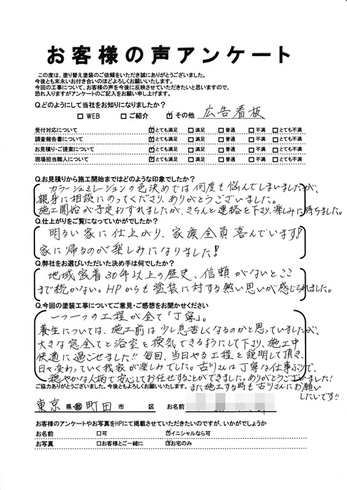 お客様の声アンケート
この度は、塗り替え塗装のご依頼をいただき誠にありがとうございました。
今後とも末永いお付き合いのほどよろしくお願いいたします。
今回の工事について、お客様の声を今後に反映させていただきたいと思いますので、
恐れ入りますがアンケートのご記入をお願い申し上げます。
Q.どのようにして当社をお知りになりましたか?
□ WEB □ ご紹介 ☑ その他 広告看板
受付対応について ☑とても満足 □満足 □普通 □不満 □とても不満
調査報告書について ☑とても満足 □満足 □普通 □不満 □とても不満
お見積り・ご提案について ☑とても満足 □満足 □普通 □不満 □とても不満
現場担当職人について ☑とても満足 □満足 □普通 □不満 □とても不満
Q.お見積りから施工開始まではどのような印象でしたか?
カラーシュミレーションの色決めでは何度も悩んでしまいましたが、
親身に相談にのってくださり、ありがとうございました。
施工開始が予定よりずれましたが、きちんと連絡を下さり、楽しみに待ちました。
Q.仕上がりをご覧になっていかがでしたか?
明るい家に仕上がり、家族全員喜んでいます!
家に帰るのが楽しみになりました!
Q.弊社をお選びいただいた決め手は何でしたか?
地域密着30年以上の歴史、信頼がないとここ
まで続かない。HPからも塗装に対する熱い思いが感じられました。
Q.今回の塗装工事についてご意見・ご感想をお聞かせください
一つ一つの工程が全て「丁寧」。
養生については、施工前は少し息苦しくなるのかと思っていましたが、
大きな窓全てと浴室を換気できるようにして下さり、施工中
快適に過ごせました!!毎回、当日やる工程を説明して頂き、
日々変わっていく我家が楽しみでした。古川さんは丁寧な仕事ぶりで、
穏やかな人柄で安心してお任せすることができました。ありがとうございました!
ご協力ありがとうございました。今後ともよろしくお願いいたします。
また施工する時も古川さんにお願い
したいです!!
東京 県 町田 市 区 お名前
お客様のアンケートやお写真をHPにて掲載させていただきたいのですが、いかがでしょうか
お名前 □可 ☑イニシャルなら可
お写真 □お客様とご一緒に ☑お宅のみ